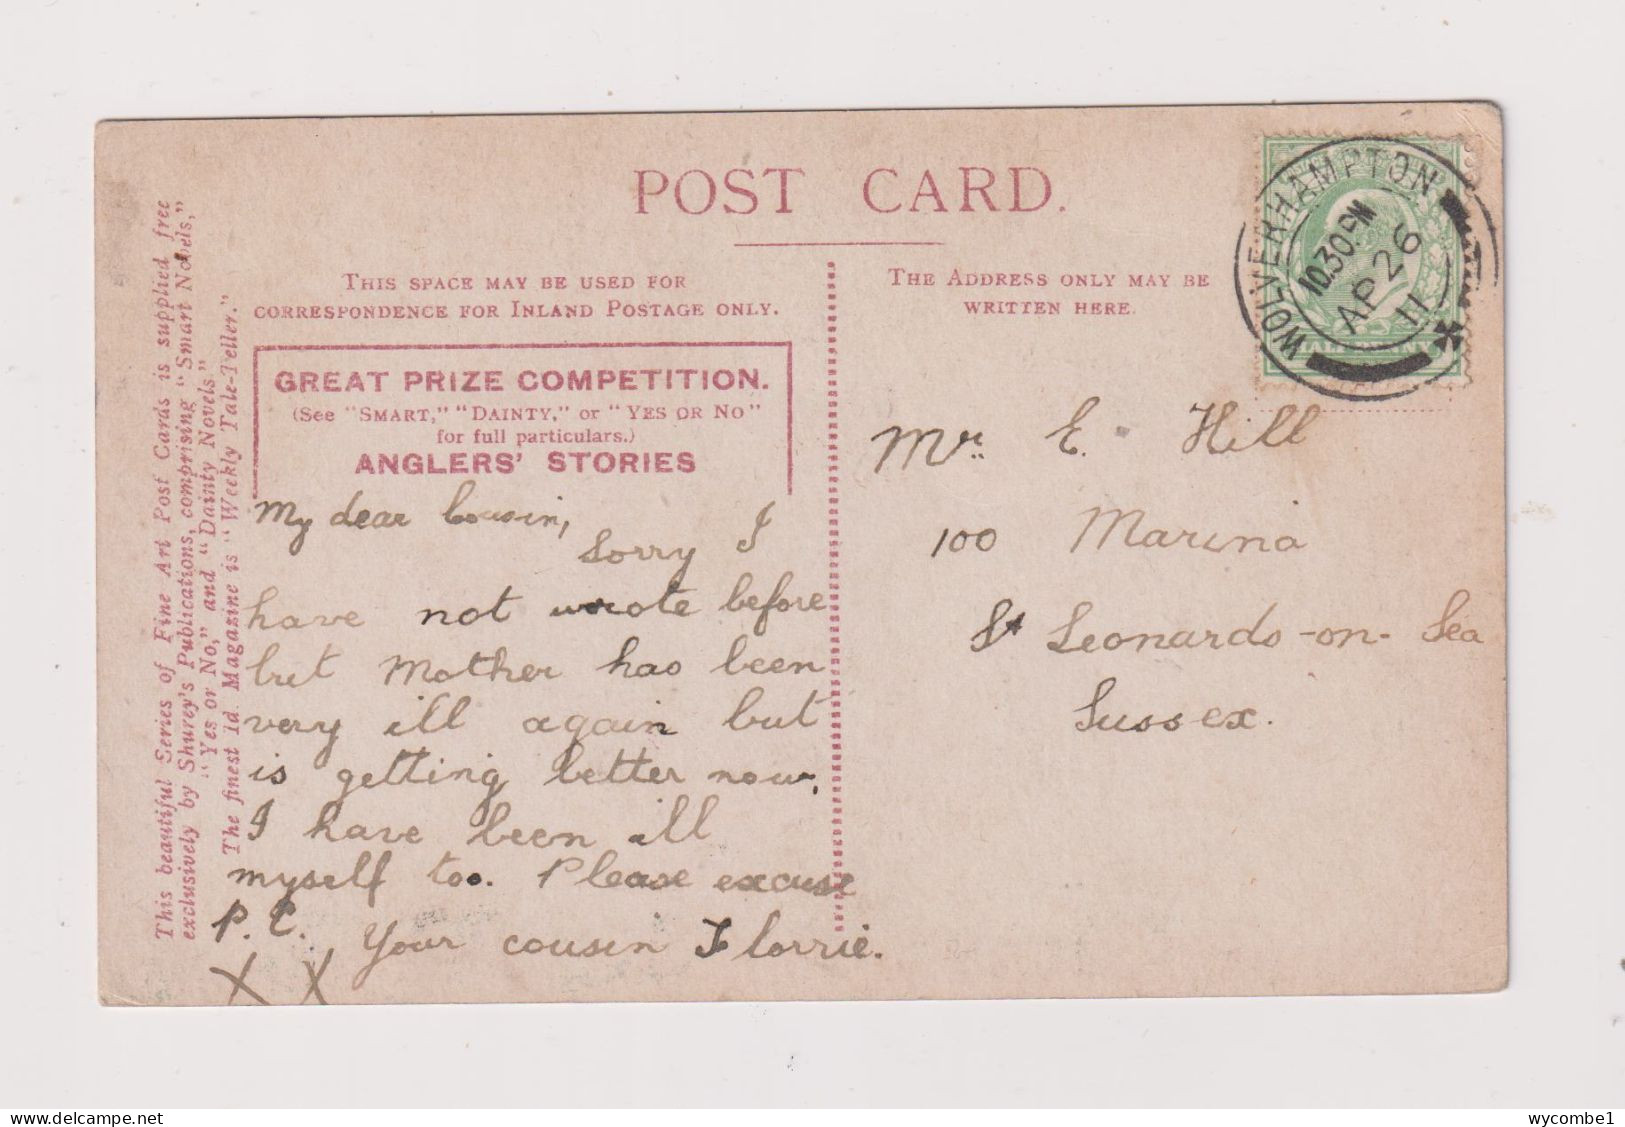 POST CARD.
THIS SPACE MAY BE USED FOR
CORRESPONDENCE FOR INLAND POSTAGE ONLY.
THE ADDRESS ONLY MAY BE
WRITTEN HERE.
GREAT PRIZE COMPETITION.
(See "SMART," "DAINTY," or "YES OR NO"
for full particulars.)
ANGLERS' STORIES
This beautiful Series of Fine Art Post Cards is supplied free
exclusively by Shurey's Publications, comprising "Smart Novels,"
"Yes or No," and "Dainty Novels"
The finest 1d. Magazine is "Weekly Tale-Teller."
My dear Cousin,
Sorry I
have not wrote before
but Mother has been
very ill again but
is getting better now.
I have been ill
myself too. Please excuse
P.C. Your cousin Florrie.
X X
Mr. E. Hill
100 Marina
St Leonards-on-Sea
Sussex.
WOLVERHAMPTON
10.30 PM
AP 26
11
HALFPENNY
wycombe1